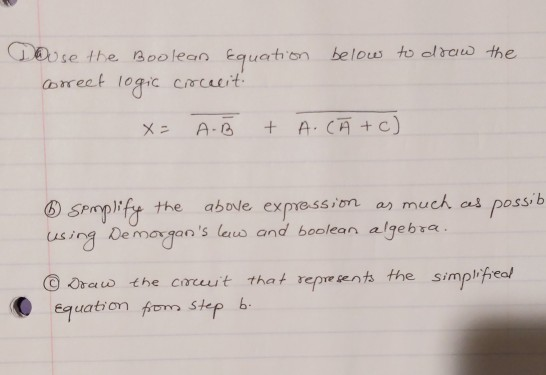 ① ⓐ Use the Boolean Equation below to draw the
correct logic circuit.
X = \overline{A·\overline{B}} + \overline{A·(\overline{A} + C)}
ⓑ Simplify the above expression as much as possib
using Demorgan's law and boolean algebra.
ⓒ Draw the circuit that represents the simplified
Equation from step b.